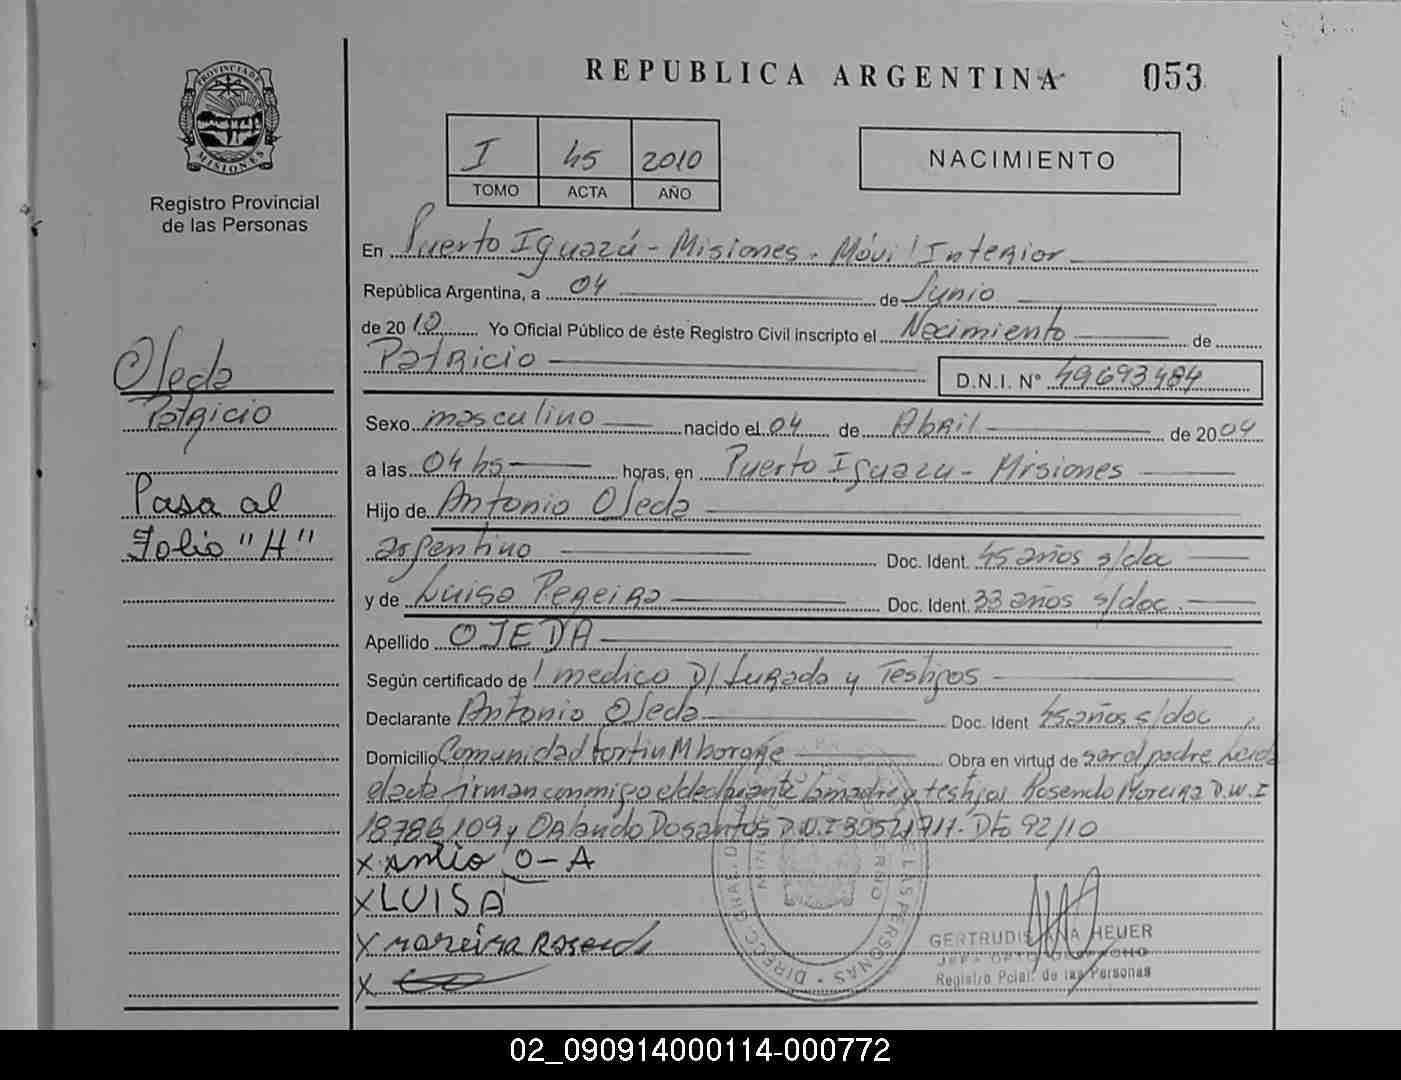 REPUBLICA ARGENTINA 053
PROVINCIA DE MISIONES
Registro Provincial
de las Personas
I 45 2010
TOMO ACTA AÑO
NACIMIENTO
En Puerto Iguazú - Misiones. Móvil Interior
República Argentina, a 04 de Junio
de 2010 Yo Oficial Público de éste Registro Civil inscripto el Nacimiento de
Patricio D.N.I. Nº 49693484
Ojeda
Patricio
Pasa al
Folio "H"
Sexo masculino nacido el 04 de Abril de 2009
a las 04 hs horas, en Puerto Iguazu - Misiones
Hijo de Antonio Ojeda
argentino Doc. Ident. 45 años s/doc
y de Luisa Pereira Doc. Ident. 33 años s/doc.
Apellido OJEDA
Según certificado de 1 medico D/Jurada y Testigos
Declarante Antonio Ojeda Doc. Ident 45 años s/doc
Domicilio Comunidad Fortin Mborore Obra en virtud de ser el padre Leida
el acta firman conmigo el declarante la madre y testigos Rosendo Moreira D.N.I
18786109 y Orlando Dosantos D.N.I 30521711 - Dto 92/10
x Antio O-A
x LUISA
x moreira Rosendo
x
GERTRUDIS ANA HEUER
JEFA DPTO DESPACHO
Registro Pcial. de las Personas
02_090914000114-000772